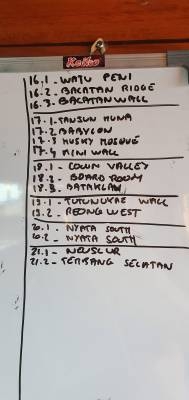 Kelko
16.1 - WATU PENI
16.2 - BACATAN RIDGE
16.3 - BACATAN WALL
17.1 - TANJUN MUNA
17.2 BABYLON
17.3 HUSKY MOSQUÉ
17.4 MINI WALL
18.1 - COWN VALLEY
18.2 - BOARD ROOM
18.3 - BATAKLAN
19.1 - TUTUNUKAE WALL
19.2 - REONG WEST
20.1 - NYATA SOUTH
20.2 - NYATA SOUTH
21.1 - NEUSLUR
21.2 - TERBANG SELATAN